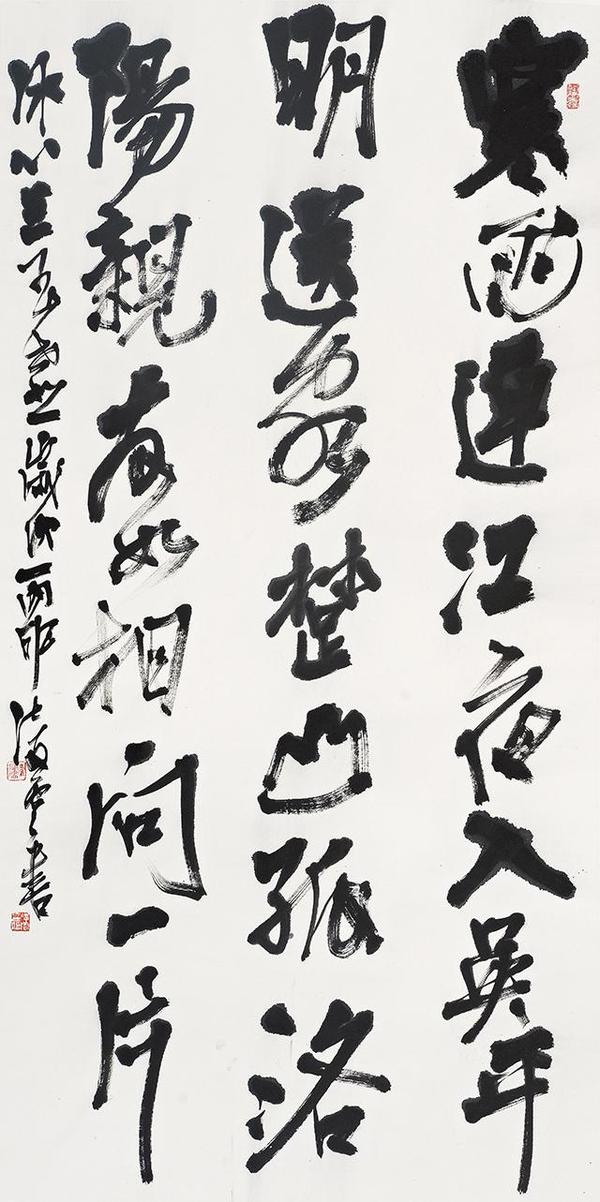 寒雨連江夜入吳平
明送客楚山孤洛
陽親友如相問一片
冰心在玉壺 歲次丙申 書